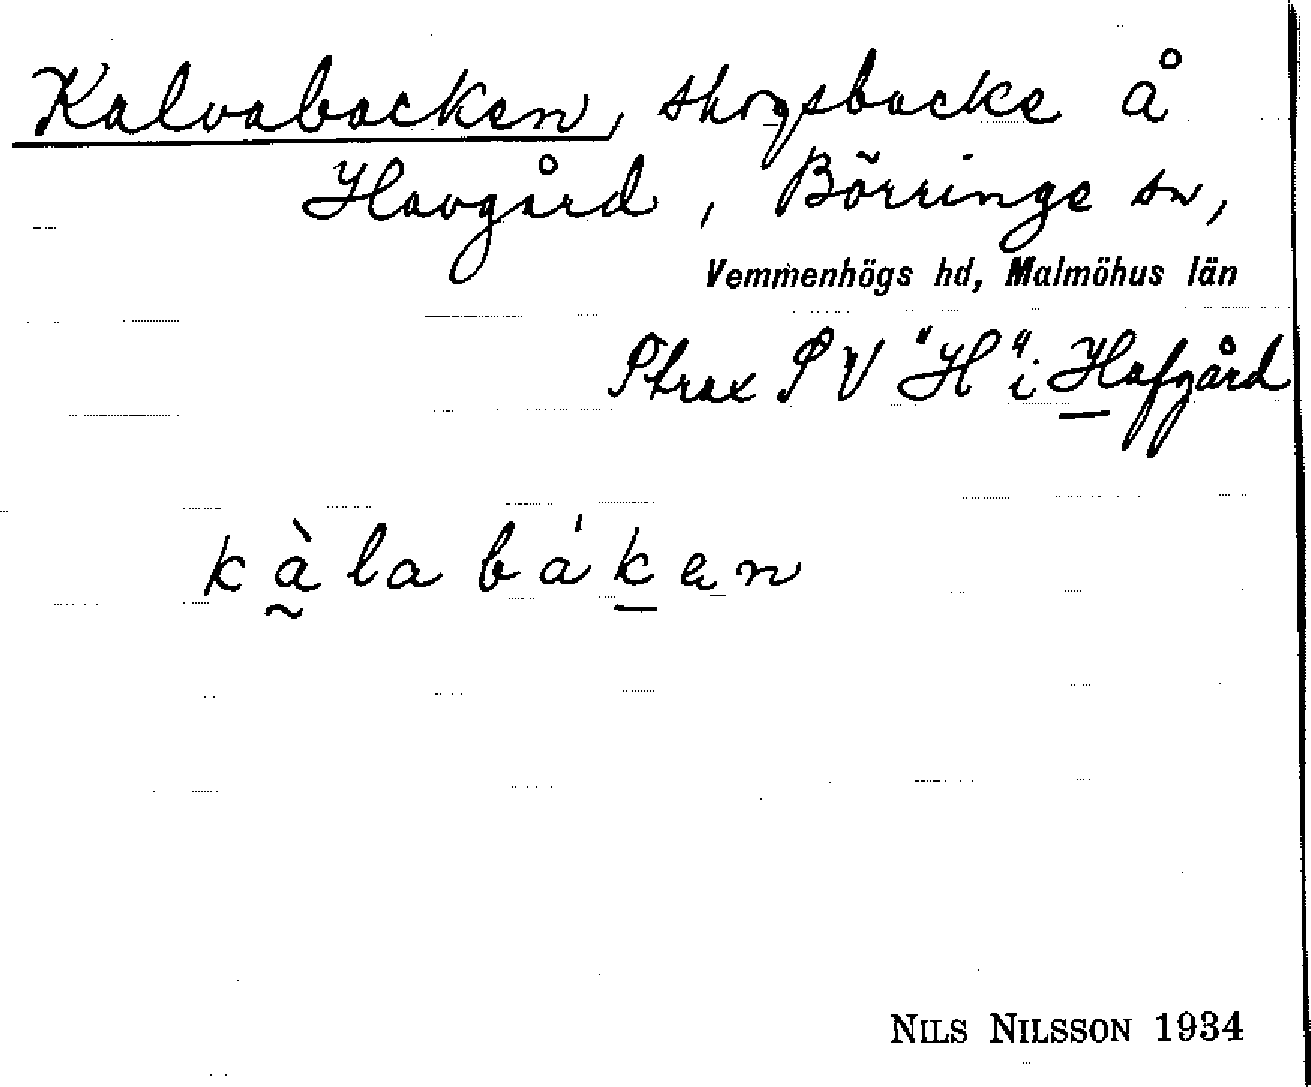 Kalvabacken, skogsbacke å
Havgård, Börringe sn,
Vemmenhögs hd, Malmöhus län
Strax S V "H" i Hafgård
kàlabáken
NILS NILSSON 1934